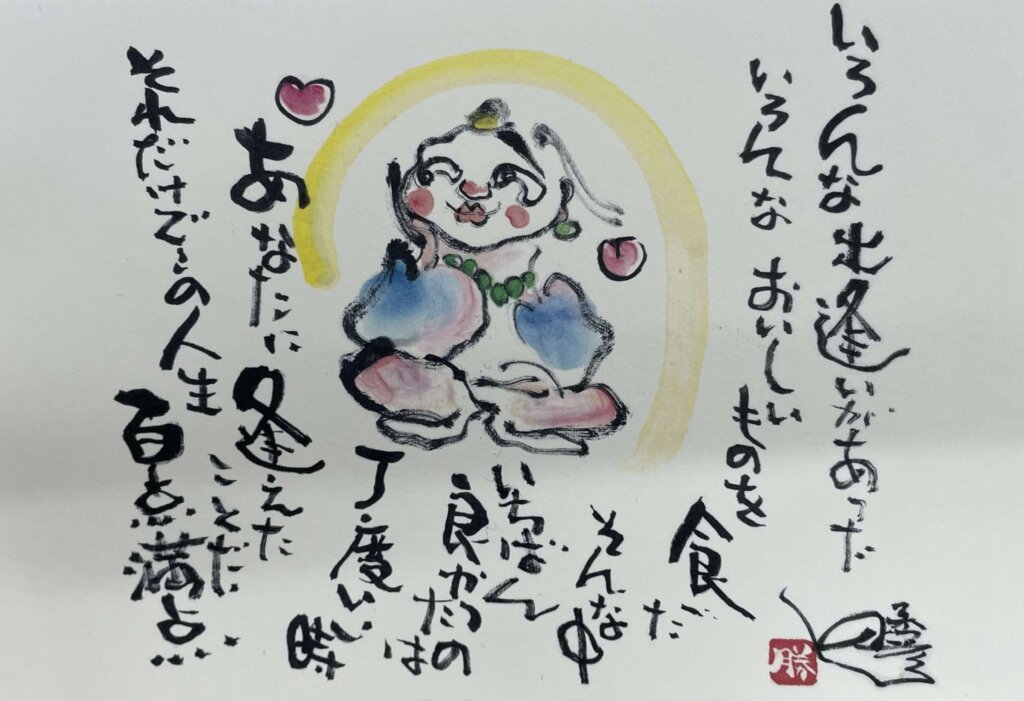 いろんな出逢いがあった
いろんなおいしいものを
食べた
そんな中
いちばん
良かったのは
丁度いい時
あなたに逢えた
ことだ
それだけでこの人生
百点満点
勝